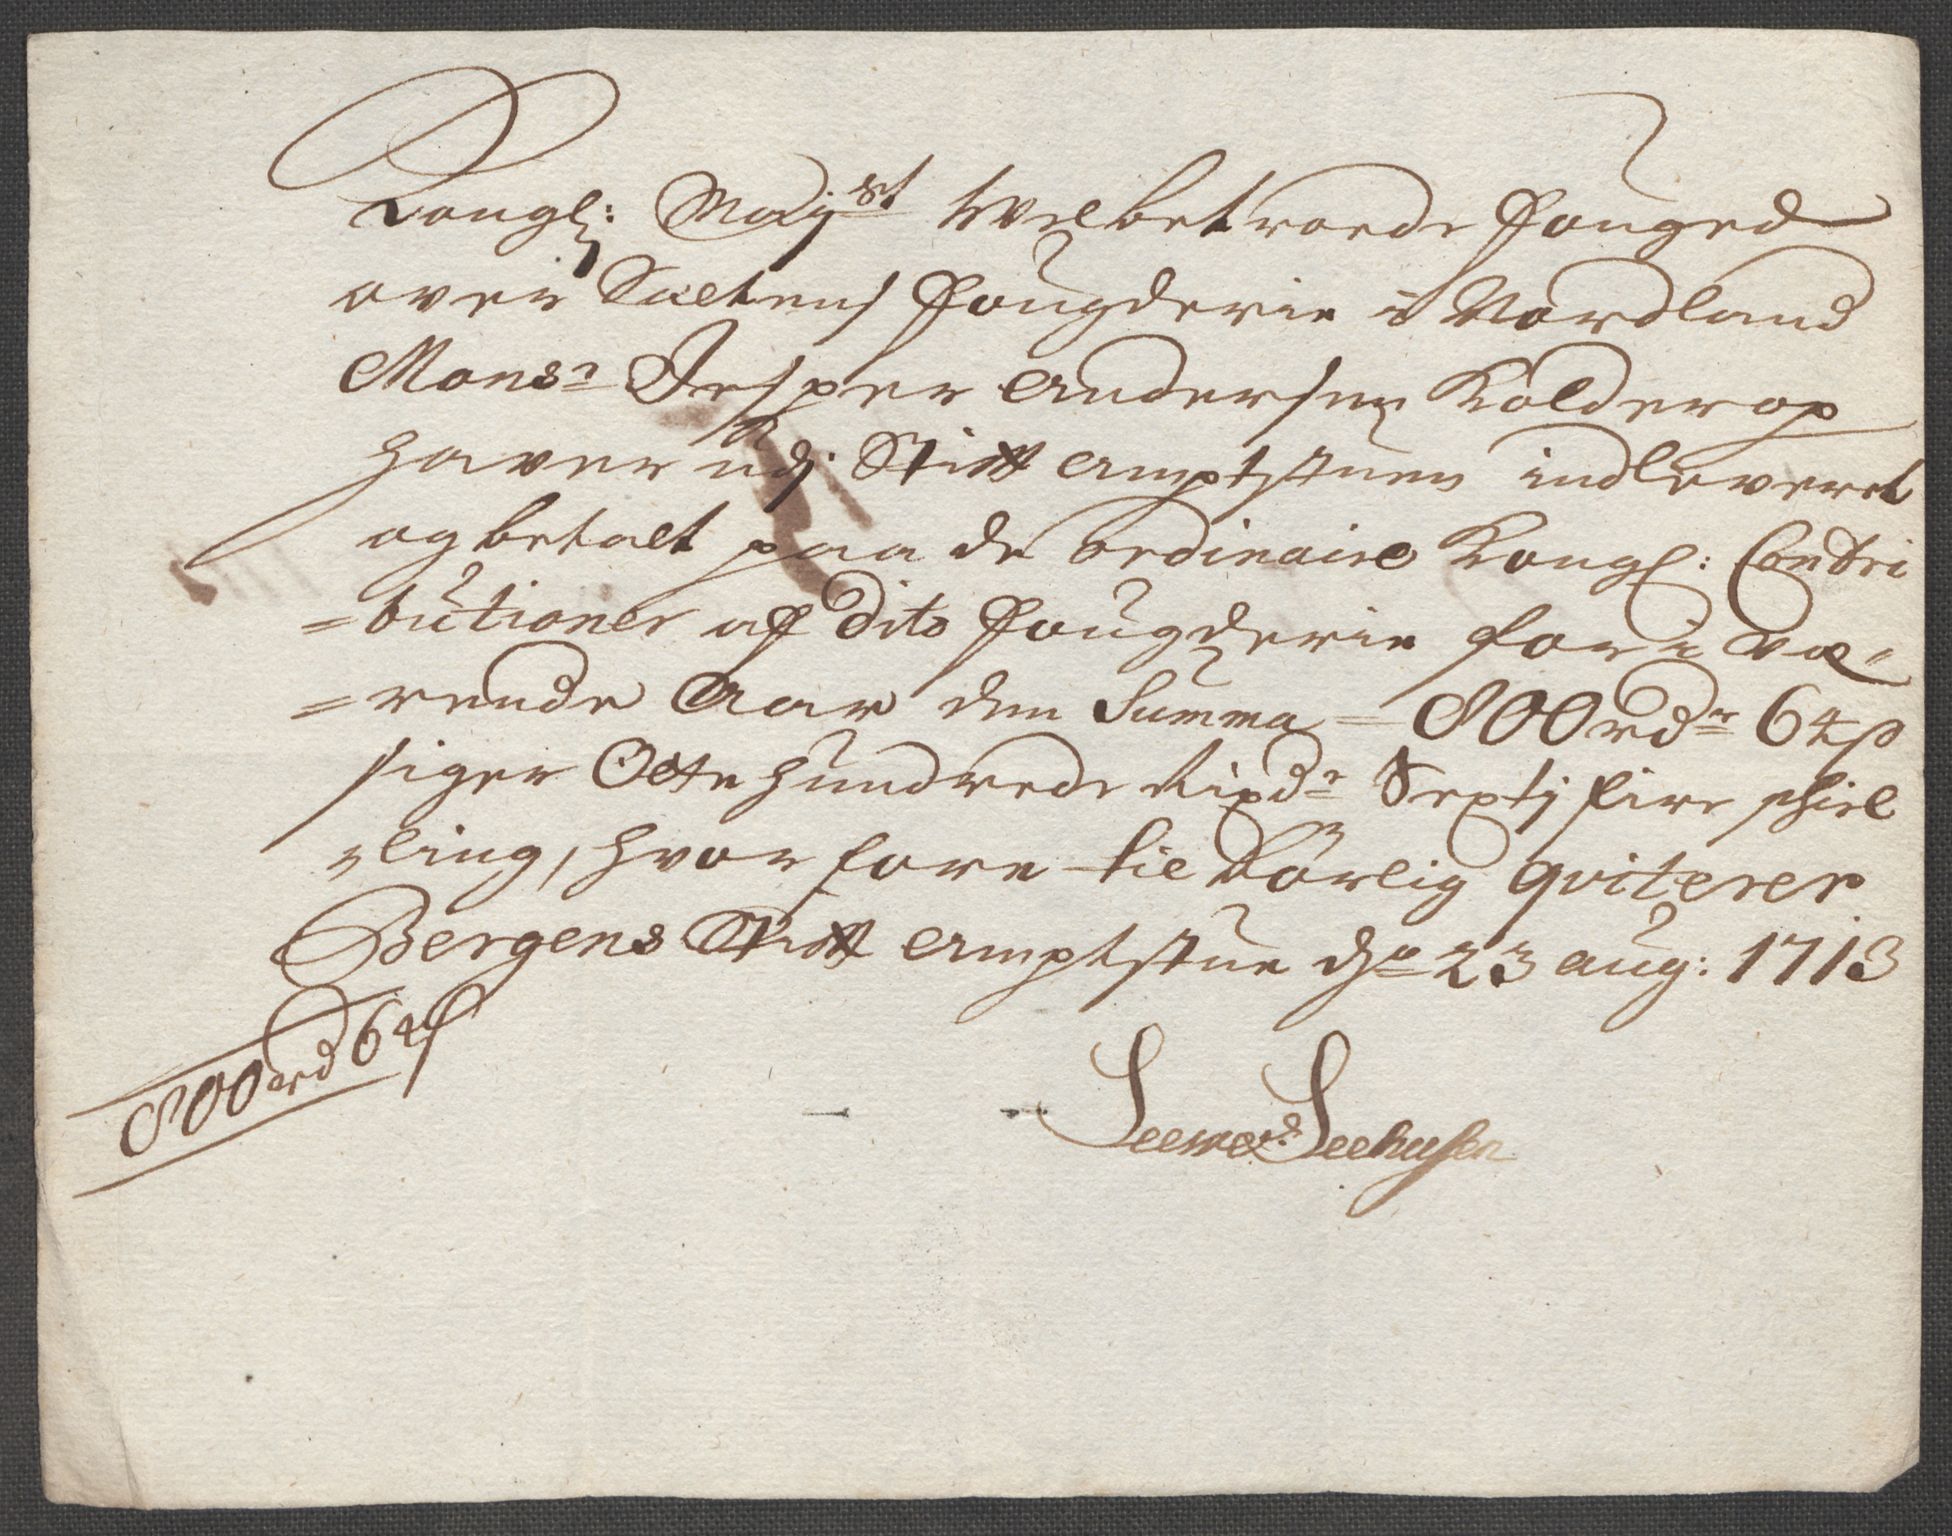 Kongl: Maÿst Welbetroede Fouged
over Saltens Fougderie i Nordland
Monsr Jesper Andersen Kolderop
haver udj Stift Amptstuen indleveret
og betalt paa de ordinaire Kongl: Contri
=butioner aff dito Fougderie for i væ=
=rende Aar den Summa = 800 rdr 64 s
siger Otte hundrede Rixdr Sextj fire schiel
=ling, hvor fore til börlig qviterer
Bergens Stift Amptstue dn 23 aug: 1713
800 rd 64 s
Seewerd Seehusen